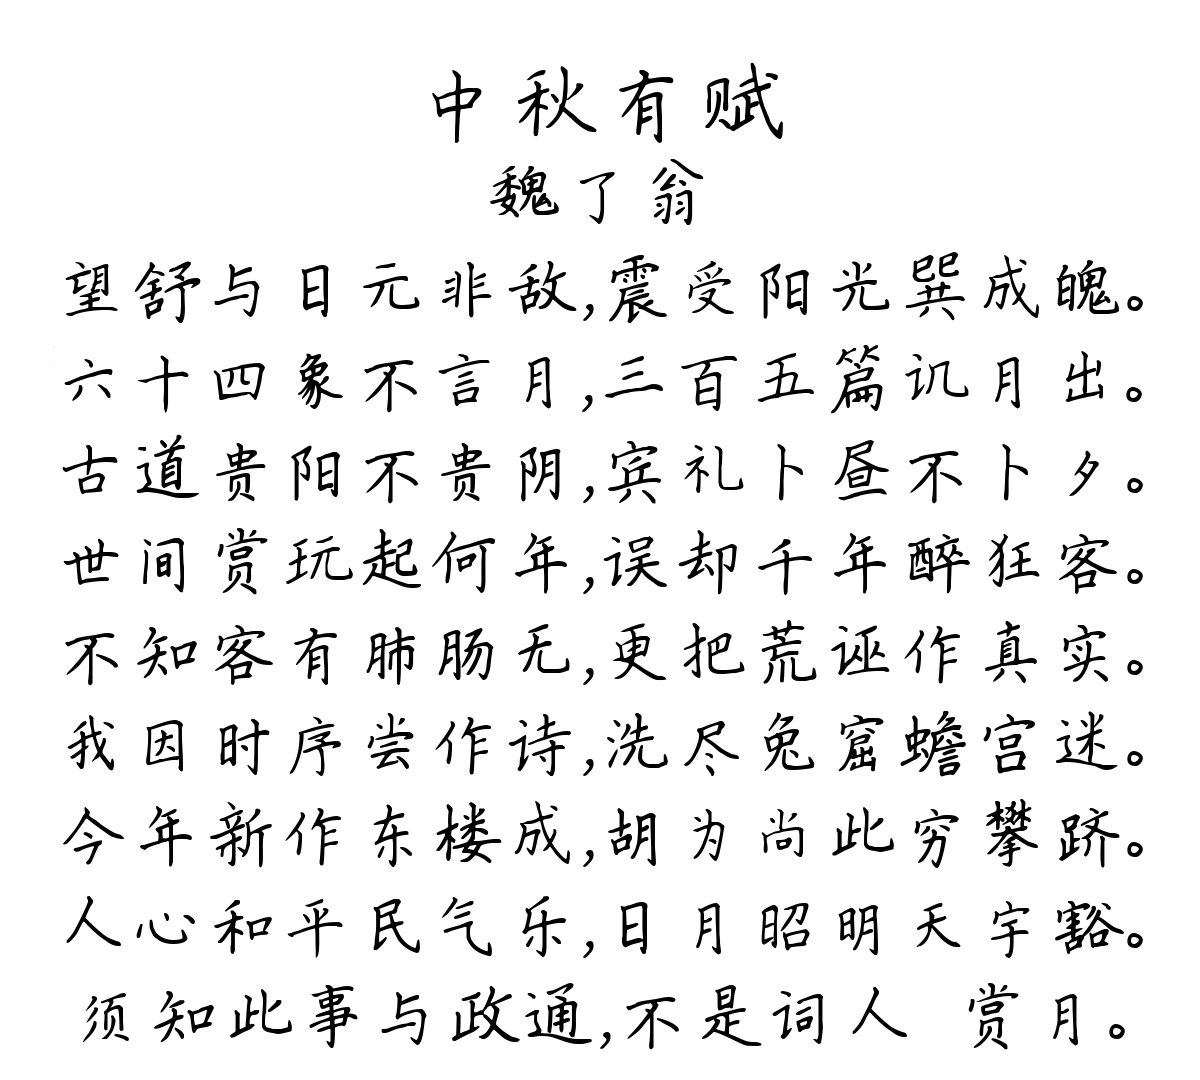 中秋有赋
魏了翁
望舒与日元非敌,震受阳光巽成魄。
六十四象不言月,三百五篇讥月出。
古道贵阳不贵阴,宾礼卜昼不卜夕。
世间赏玩起何年,误却千年醉狂客。
不知客有肺肠无,更把荒诬作真实。
我因时序尝作诗,洗尽兔窟蟾宫迷。
今年新作东楼成,胡为尚此穷攀跻。
人心和平民气乐,日月昭明天宇豁。
须知此事与政通,不是词人 赏月。